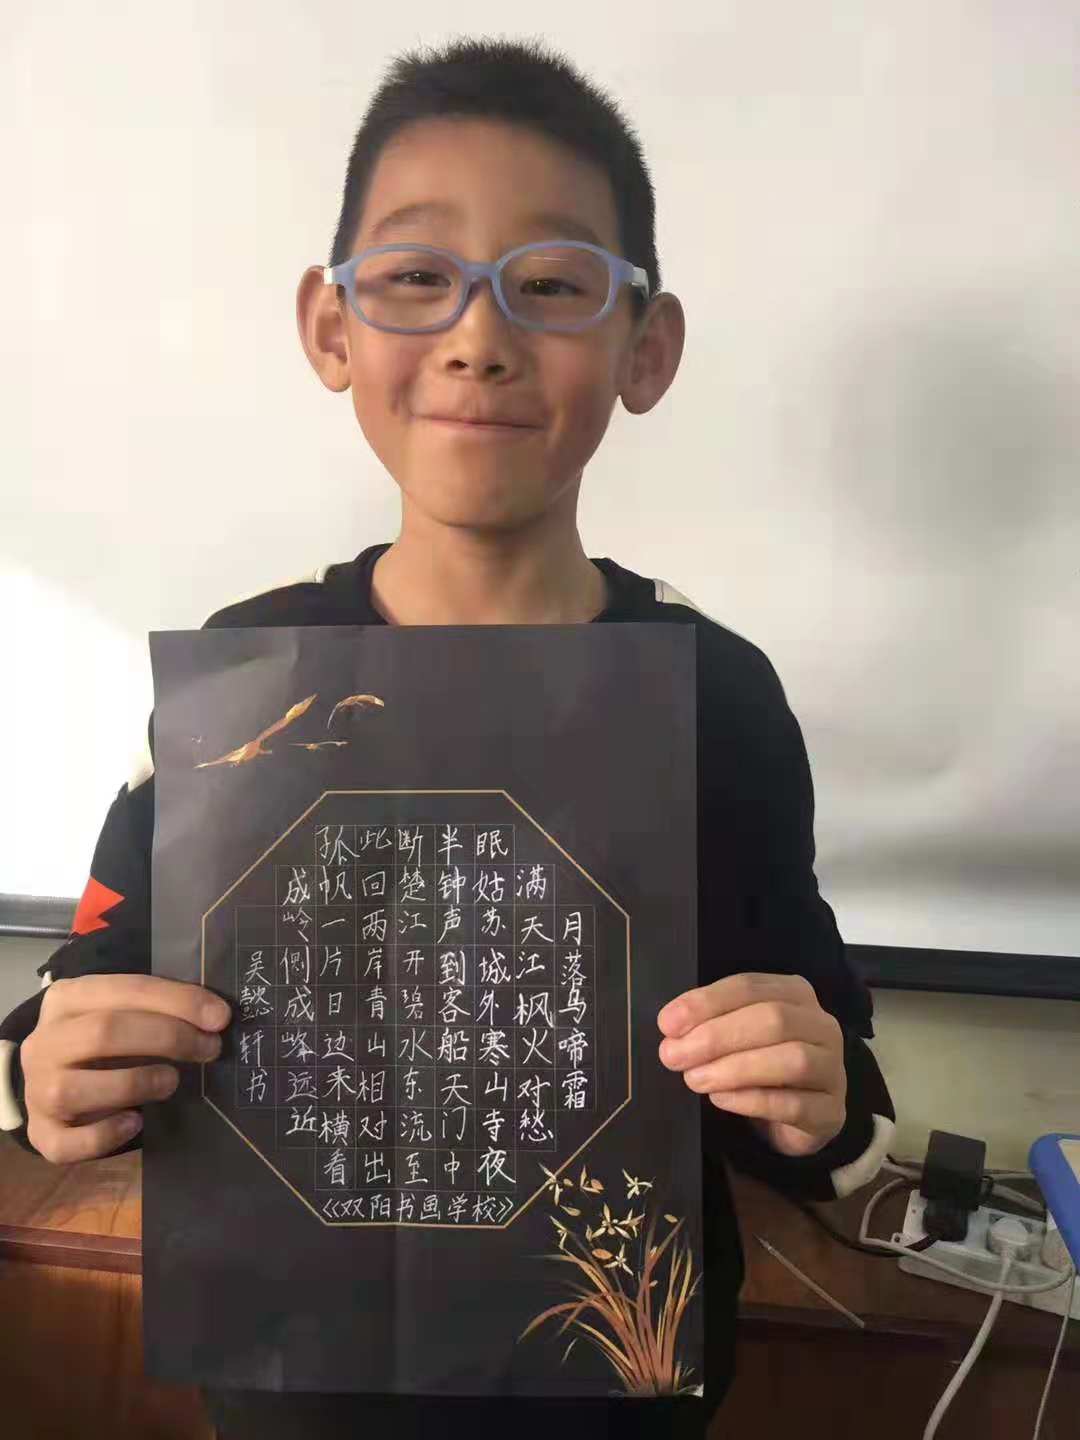 月落乌啼霜
满天江枫火对愁
眠姑苏城外寒山寺夜
半钟声到客船天门中
断楚江开碧水东流至
此回两岸青山相对出
孤帆一片日边来横看
成岭侧成峰远近
吴懿轩书
《双阳书画学校》